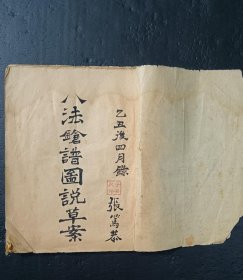 八法鎗譜圖説草案
乙丑後四月錄
張篤恭